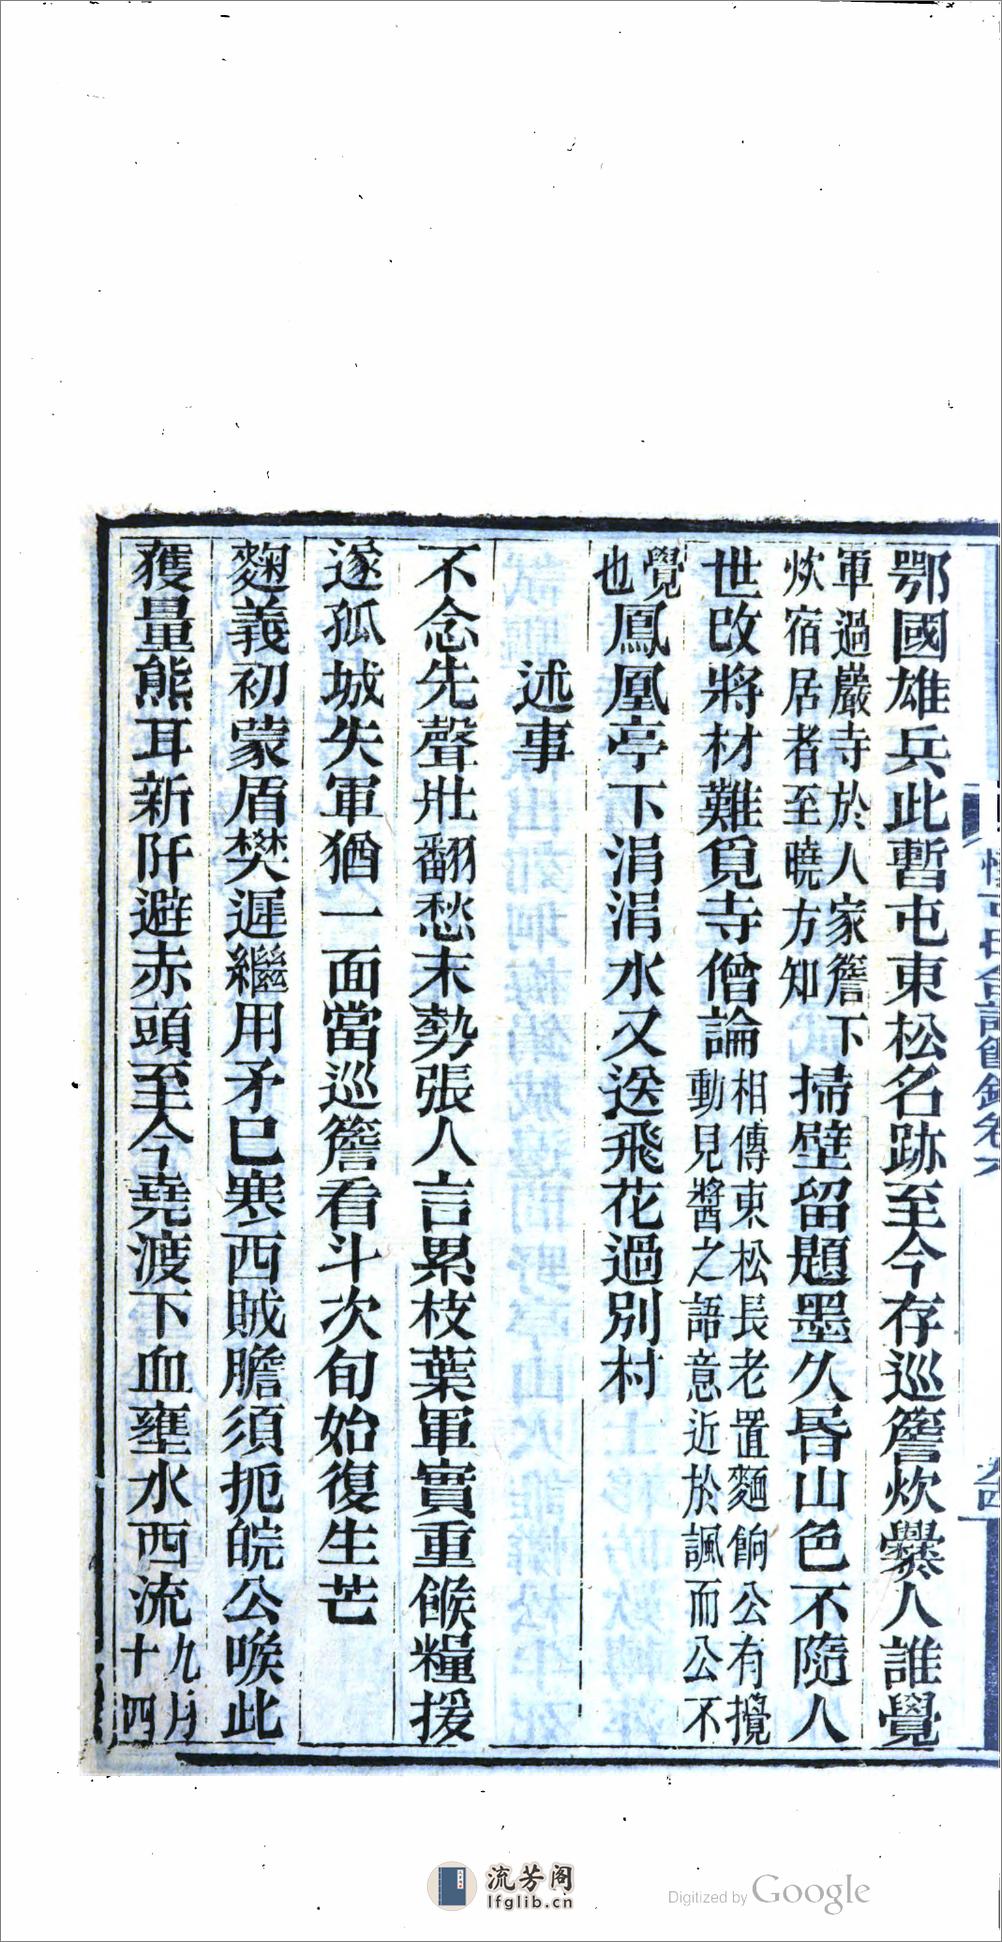 鄂國雄兵此暫屯東松名跡至今存巡簷炊爨人誰覺
軍過嚴寺於人家簷下
炊宿居者至曉方知
掃壁留題墨久昏山色不隨人
世改將材難覓寺僧論
相傳東松長老置麵餉公有攪
動見醬之語意近於諷而公不
覺
也
鳳凰亭下涓涓水又送飛花過別村
述事
不念先聲壯翻愁末勢張人言累枝葉軍實重餱糧援
遂孤城失軍猶一面當巡簷看斗次旬始復生芒
麴義初蒙盾樊遲繼用矛已寒西賊膽須扼皖公喉此
獲量熊耳新阡避赤頭至今堯渡下血壅水西流
九月
十四
流芳阁
lfglib.cn
Digitized by Google